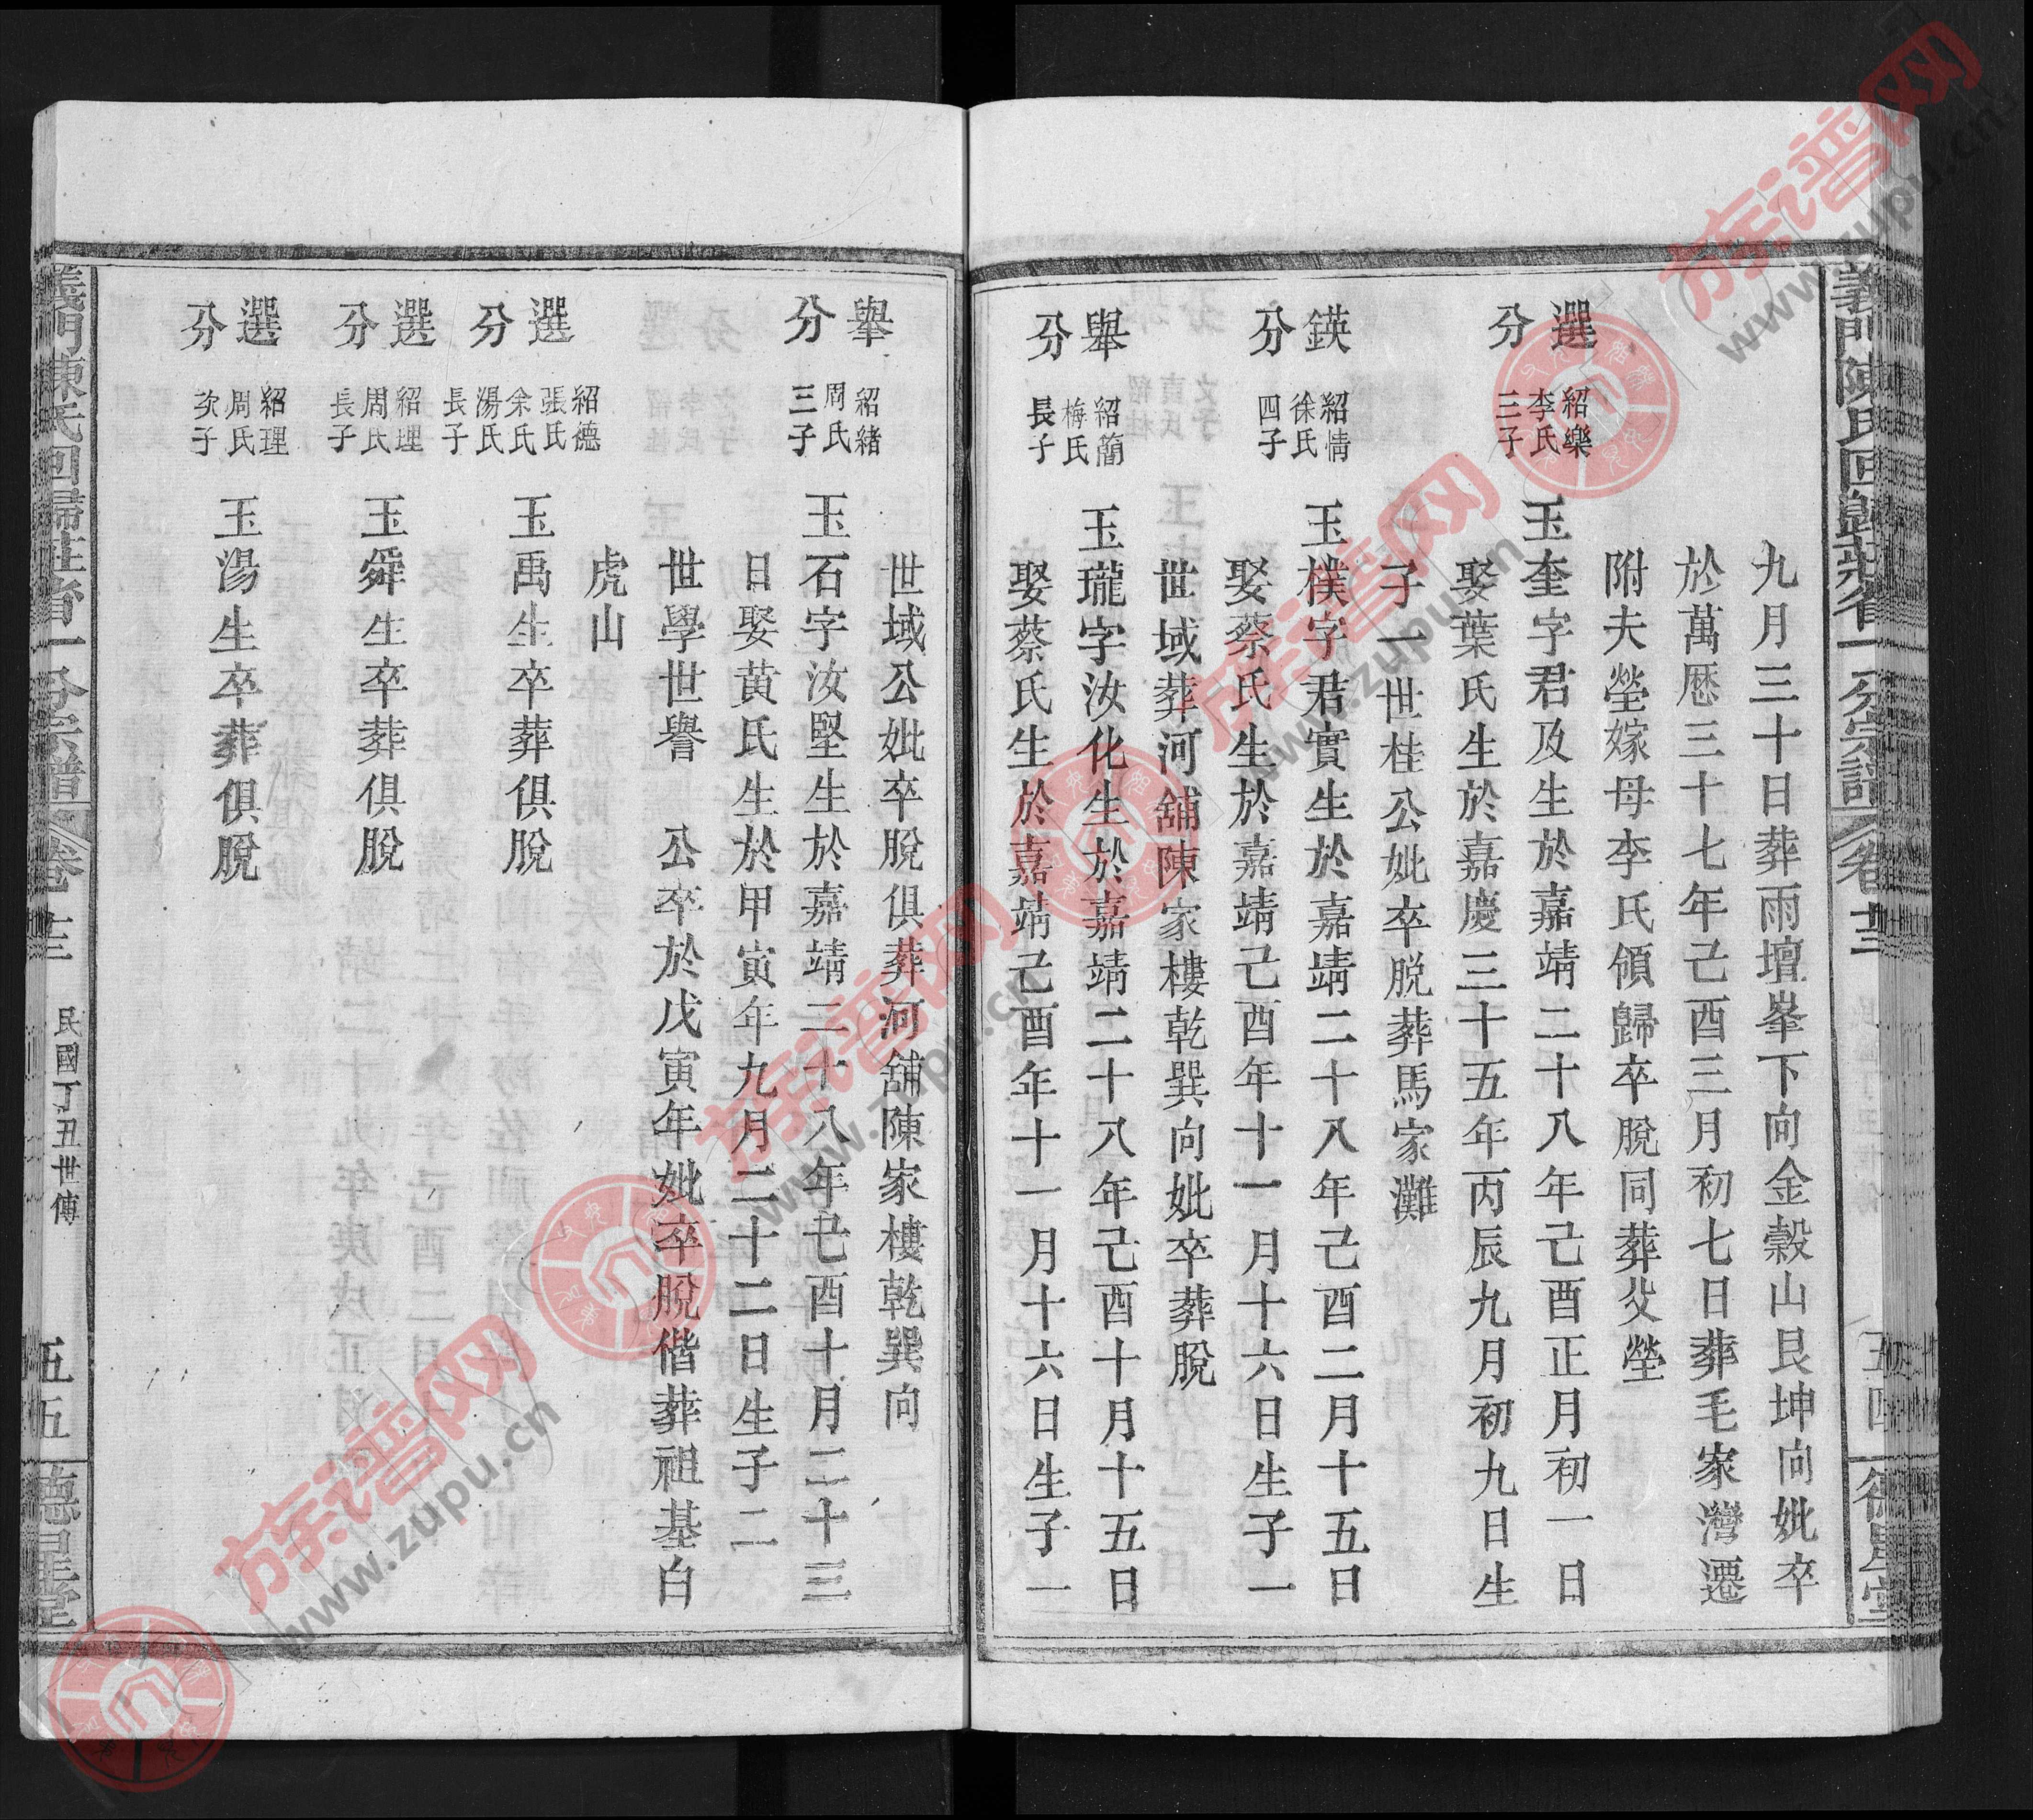 義門陳氏回歸莊省一分宗譜 卷廿三 五四 德星堂
九月三十日葬雨壇峯下向金穀山艮坤向妣卒
於萬曆三十七年己酉三月初七日葬毛家灣遷
附夫塋嫁母李氏領歸卒脫同葬父塋
選分 紹樂李氏三子 玉奎字君及生於嘉靖二十八年己酉正月初一日
娶葉氏生於嘉慶三十五年丙辰九月初九日生
子一世桂公妣卒脫葬馬家灘
鍈分 紹情徐氏四子 玉樸字君實生於嘉靖二十八年己酉二月十五日
娶蔡氏生於嘉靖己酉年十一月十六日生子一
世域葬河舖陳家樓乾巽向妣卒葬脫
舉分 紹簡梅氏長子 玉瓏字汝化生於嘉靖二十八年己酉十月十五日
娶蔡氏生於嘉靖己酉年十一月十六日生子一
世域公妣卒脫俱葬河舖陳家樓乾巽向
舉分 紹緒周氏三子 玉石字汝堅生於嘉靖二十八年己酉十月二十三
日娶黃氏生於甲寅年九月二十二日生子二
世學世譽 公卒於戊寅年妣卒脫偕葬祖基白
虎山
選分 紹德張氏余氏湯氏長子 玉禹生卒葬俱脫
選分 紹理周氏長子 玉舜生卒葬俱脫
選分 紹理周氏次子 玉湯生卒葬俱脫
義門陳氏回歸莊省一分宗譜 卷廿三 民國丁丑世傳 五五 德星堂
族谱网
www.zupu.cn
族谱网
www.zupu.cn
族谱网
www.zupu.cn
族谱网
www.zupu.cn